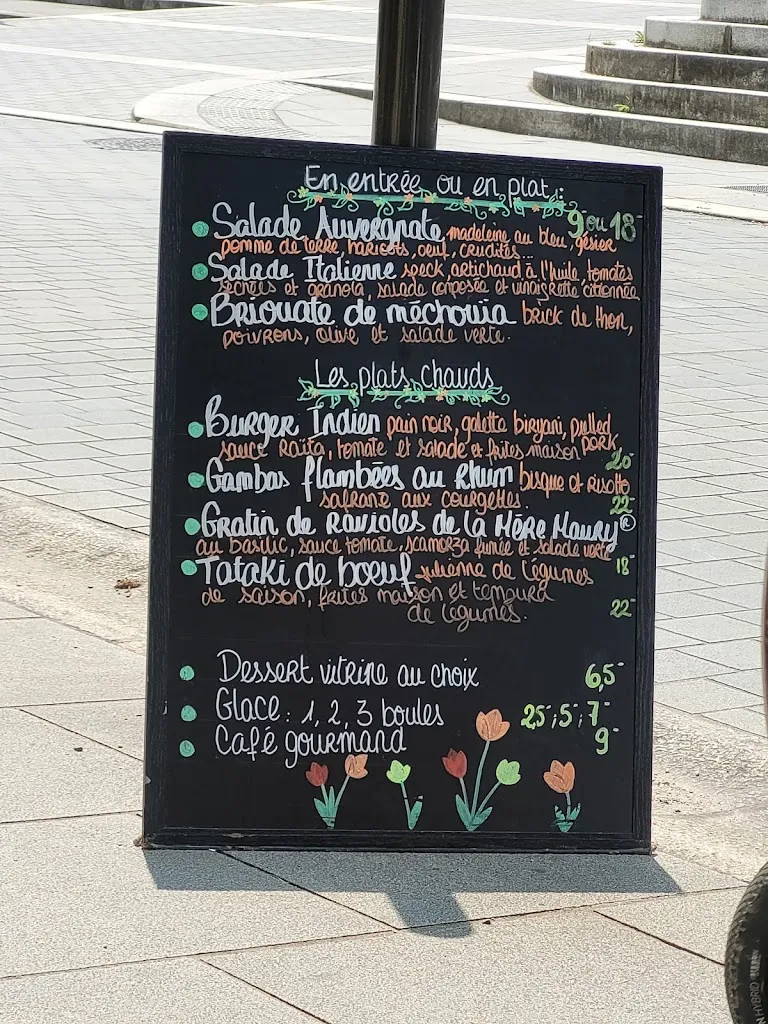 En entrée ou en plat :
9 ou 18-
Salade Auvergnate madeleine au bleu, gésier
pomme de terre, haricots, oeuf, crudités...
Salade Italienne speck, artichaud à l'huile, tomates
séchées et granola, salade composée et vinaigrette citronnée
Briouate de méchouia brick de thon,
poivrons, olive et salade verte.
Les plats chauds
Burger Indien pain noir, galette biryani, pulled
sauce Raïta, tomate et salade et frites maison pork
20-
Gambas flambées au Rhum bisque et risotto
safrané aux courgettes. 22-
Gratin de Ravioles de la Mère Maury®
au basilic, sauce tomate, scamorza fumée et salade verte
18-
Tataki de boeuf julienne de légumes
de saison, frites maison et tempura
de légumes. 22-
Dessert vitrine au choix 6,5-
Glace : 1, 2, 3 boules 2,5-; 5-; 7-
Café gourmand 9-
HYBRID